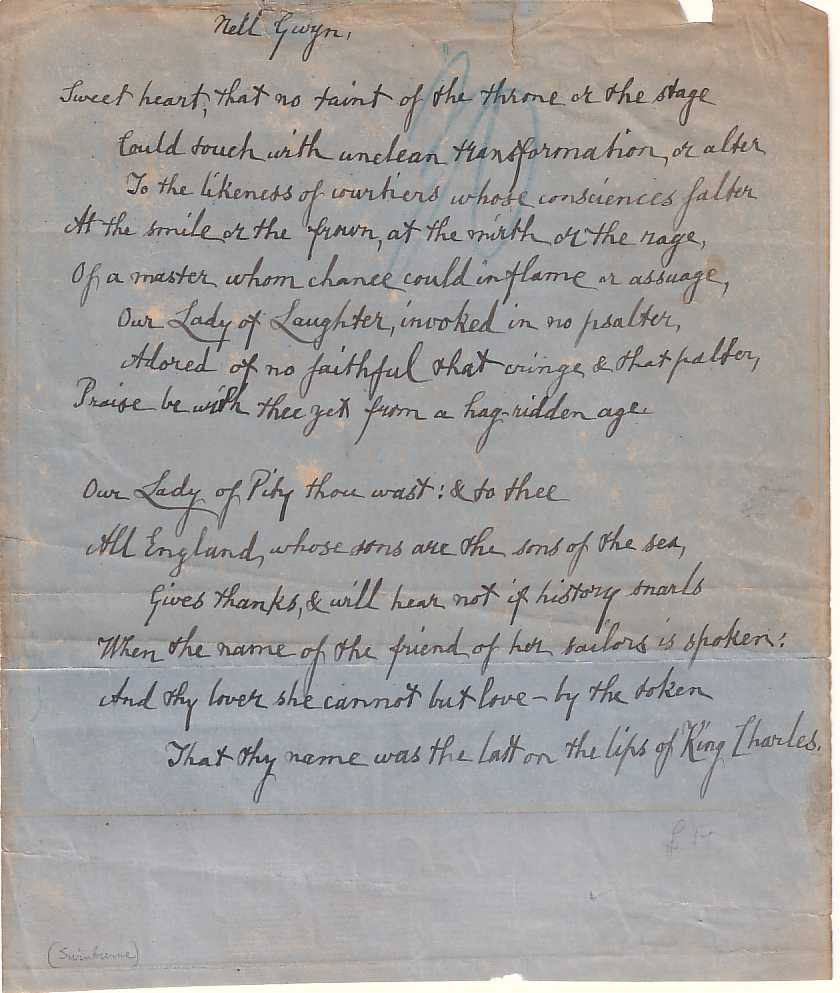 Nell Gwyn.
Sweet heart, that no taint of the throne or the stage
Could touch with unclean transformation, or alter
To the likeness of courtiers whose consciences falter
At the smile or the frown, at the mirth or the rage,
Of a master whom chance could inflame or assuage,
Our Lady of Laughter, invoked in no psalter,
Adored of no faithful that cringe & that palter,
Praise be with thee yet from a hag-ridden age.
Our Lady of Pity thou wast: & to thee
All England, whose sons are the sons of the sea,
Gives thanks, & will hear not if history snarls
When the name of the friend of her sailors is spoken:
And thy lover she cannot but love - by the token
That thy name was the last on the lips of King Charles.
(Swinburne)